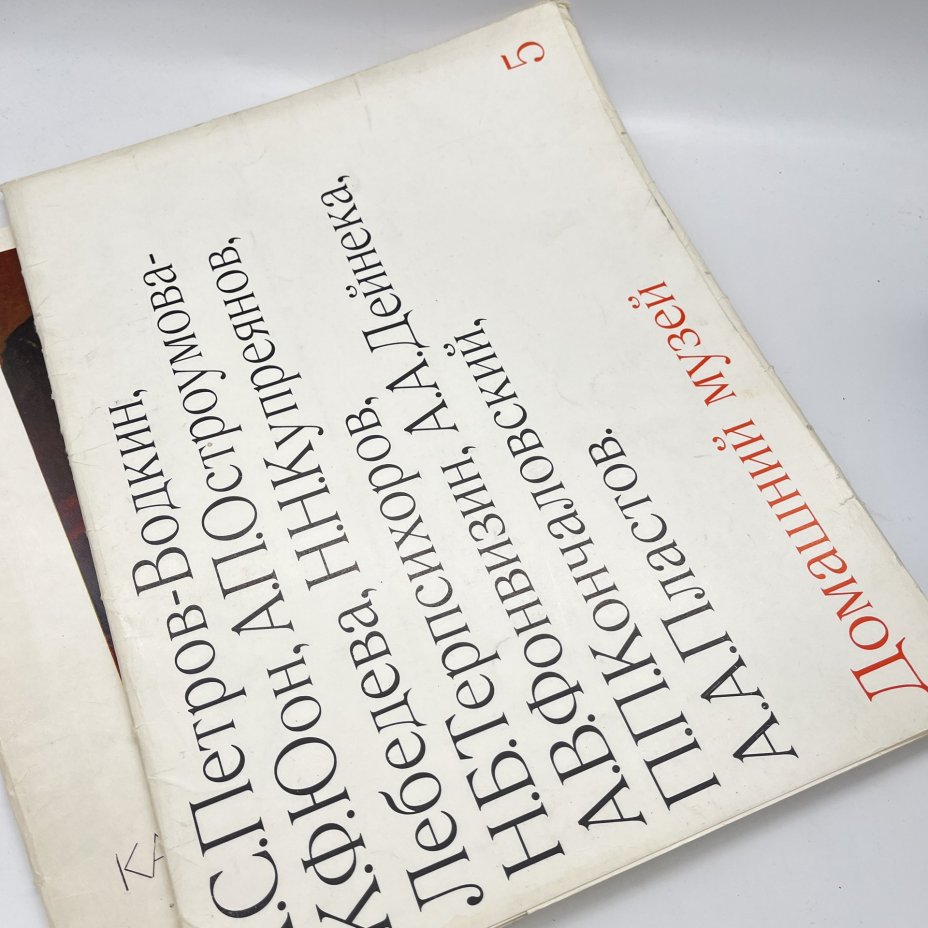 .С.Петров-Водкин,
К.Ф.Юон, А.П.Остроумова-
Лебедева, Н.Н.Купреянов,
Н.Б.Терпсихоров, А.А.Дейнека,
А.В.Фонвизин,
П.П.Кончаловский,
А.А.Пластов.
Домашний музей
5
КА